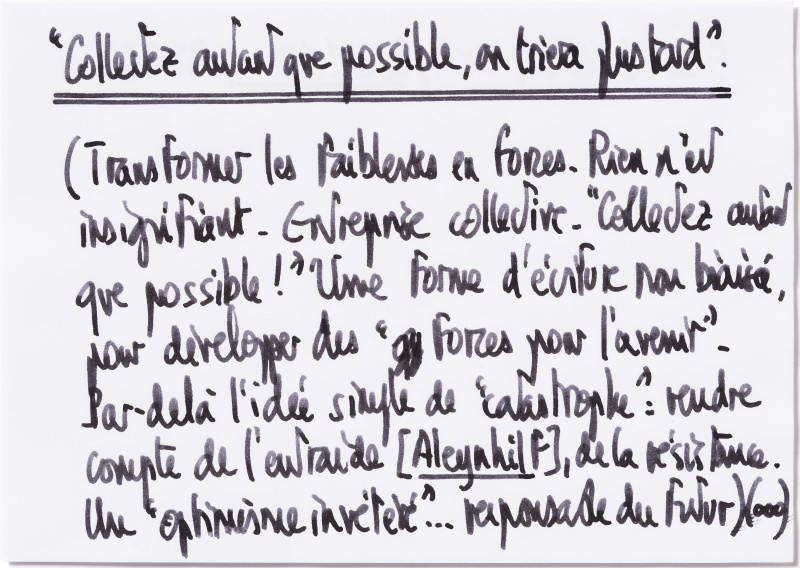 "Collectez autant que possible, on triera plus tard".
(Transformer les faiblesses en forces. Rien n'est
insignifiant. Entreprise collective. "Collectez autant
que possible !" Une forme d'écriture non biaisée,
pour développer des " forces pour l'avenir".
Par-delà l'idée simple de "catastrophe": rendre
compte de l'entraide [Aleynhilf], de la résistance.
Un "optimisme invétéré"... responsable du futur)(...)